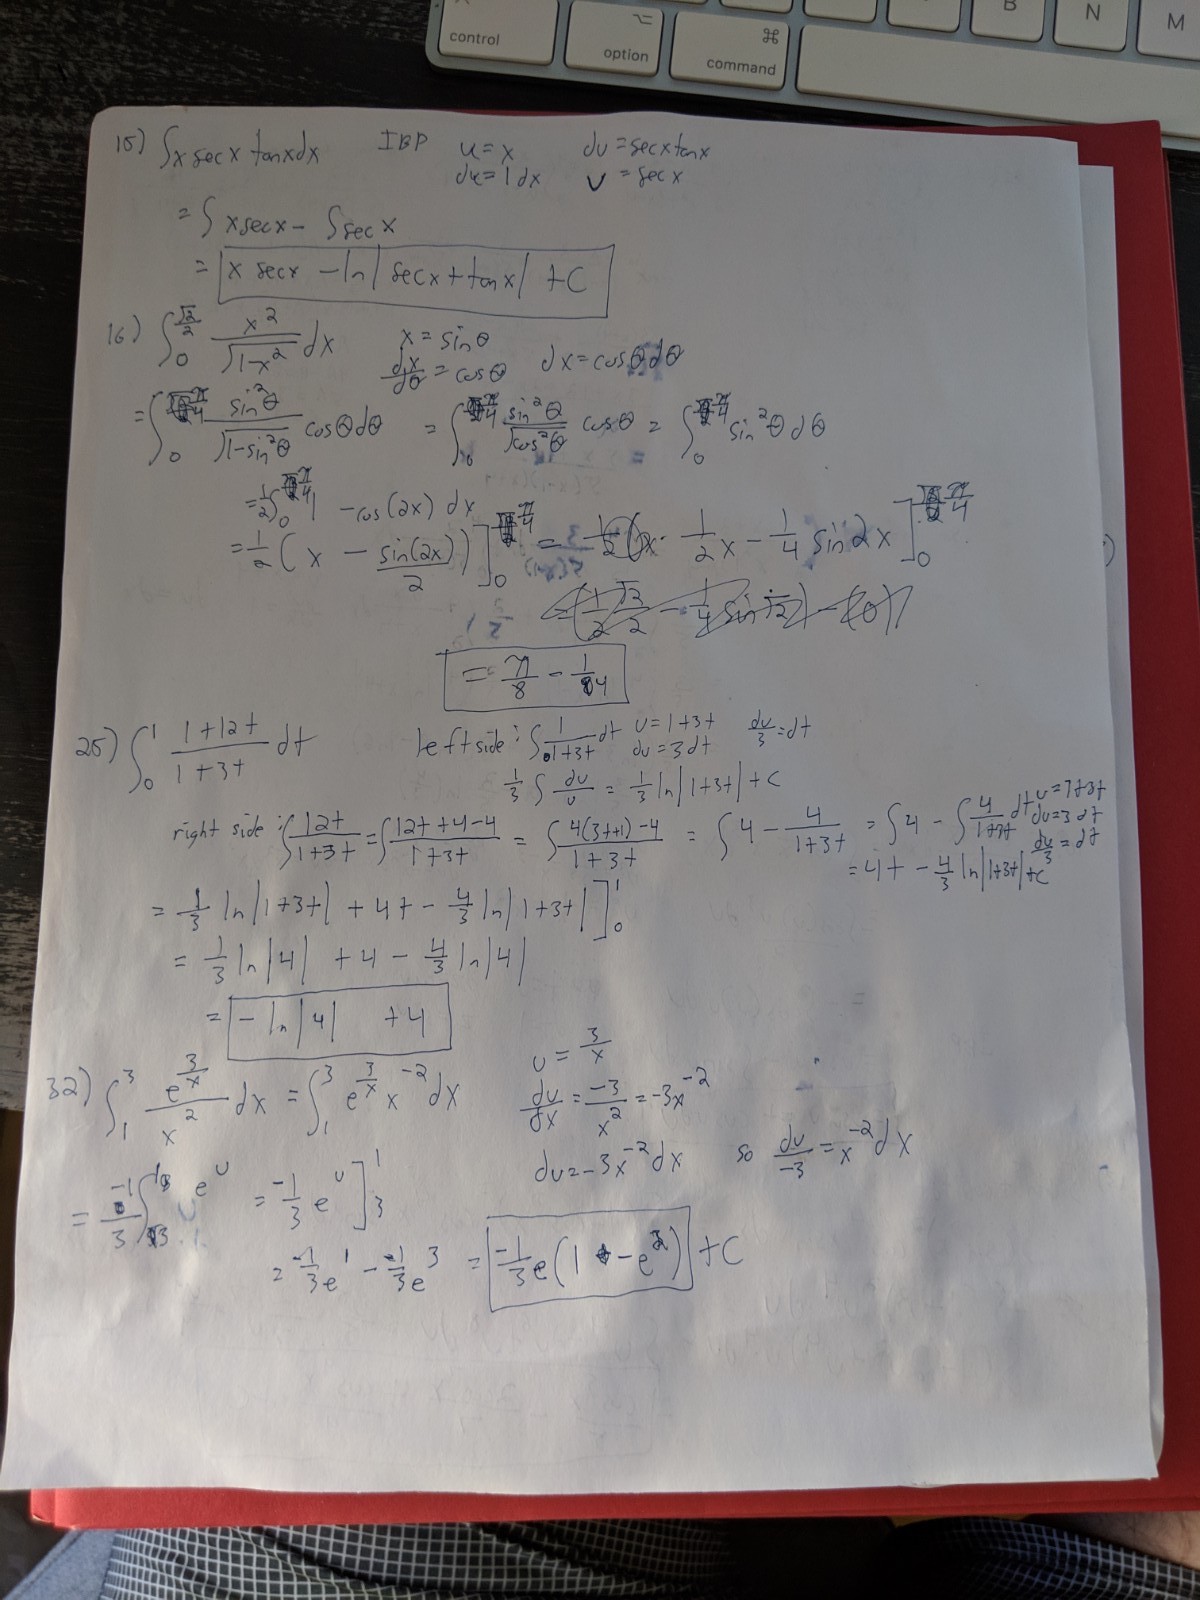 control
option
command
B
N
M
15) ∫x secx tanxdx IBP u=x dv=secxtanx
du=1dx v=secx
=∫xsecx- ∫secx
= x secx -ln|secx+tanx| +C
16) ∫₀^(√2/2) x²/√(1-x²) dx x=sinθ
dx/dθ=cosθ dx=cosθdθ
=∫₀^(π/4) sin²θ/√(1-sin²θ) cosθdθ = ∫₀^(π/4) sin²θ/√(cos²θ) cosθ = ∫₀^(π/4) sin²θdθ
=1/2∫₀^(π/4) 1 -cos(2x)dx
=1/2(x - sin(2x)/2)]₀^(π/4) = 1/2x - 1/4 sin2x]₀^(π/4)
= π/8 - 1/4
25) ∫₀¹ (1+12t)/(1+3t) dt left side: ∫1/(1+3t) dt u=1+3t du/3=dt
du=3dt
1/3 ∫ du/u = 1/3 ln|1+3t|+C
right side: ∫12t/(1+3t) = ∫(12t+4-4)/(1+3t) = ∫(4(3t+1)-4)/(1+3t) = ∫4 - 4/(1+3t) = ∫4 - ∫4/(1+3t) dt u=1+3t
du=3dt
du/3=dt
=4t - 4/3 ln|1+3t|+C
= 1/3 ln|1+3t| + 4t - 4/3 ln|1+3t|]₀¹
= 1/3 ln|4| + 4 - 4/3 ln|4|
= -ln|4| +4
32) ∫₁³ e^(3/x)/x² dx = ∫₁³ e^(3/x) x⁻² dx u=3/x
du/dx = -3/x² = -3x⁻²
du=-3x⁻²dx so du/-3 = x⁻²dx
= -1/3 ∫₃¹ e^u = -1/3 e^u]₃¹
= -1/3e¹ - -1/3e³ = -1/3e(1-e²) +C